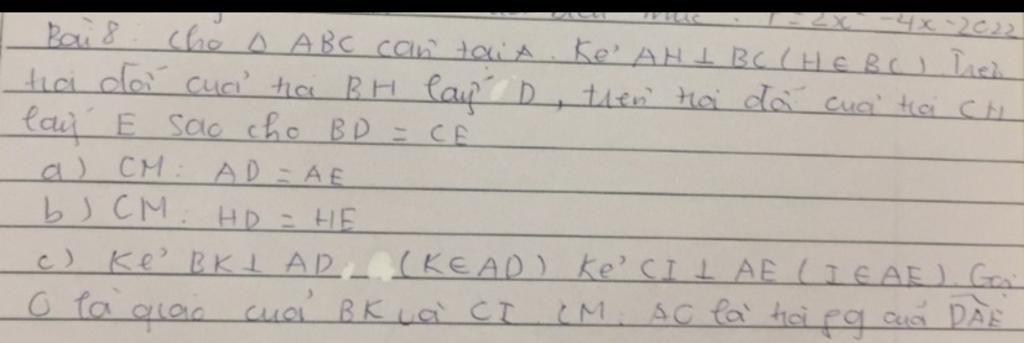 P = 2x² - 4x - 2022
Bài 8: Cho Δ ABC cân tại A. Kẻ AH ⊥ BC (H ∈ BC). Trên
tia đối của tia BH lấy D, trên tia đối của tia CH
lấy E sao cho BD = CE
a) CM: AD = AE
b) CM: HD = HE
c) Kẻ BK ⊥ AD (K ∈ AD) Kẻ CI ⊥ AE (I ∈ AE). Gọi
O là giao của BK và CI. CM: AO là tia pg của DAE